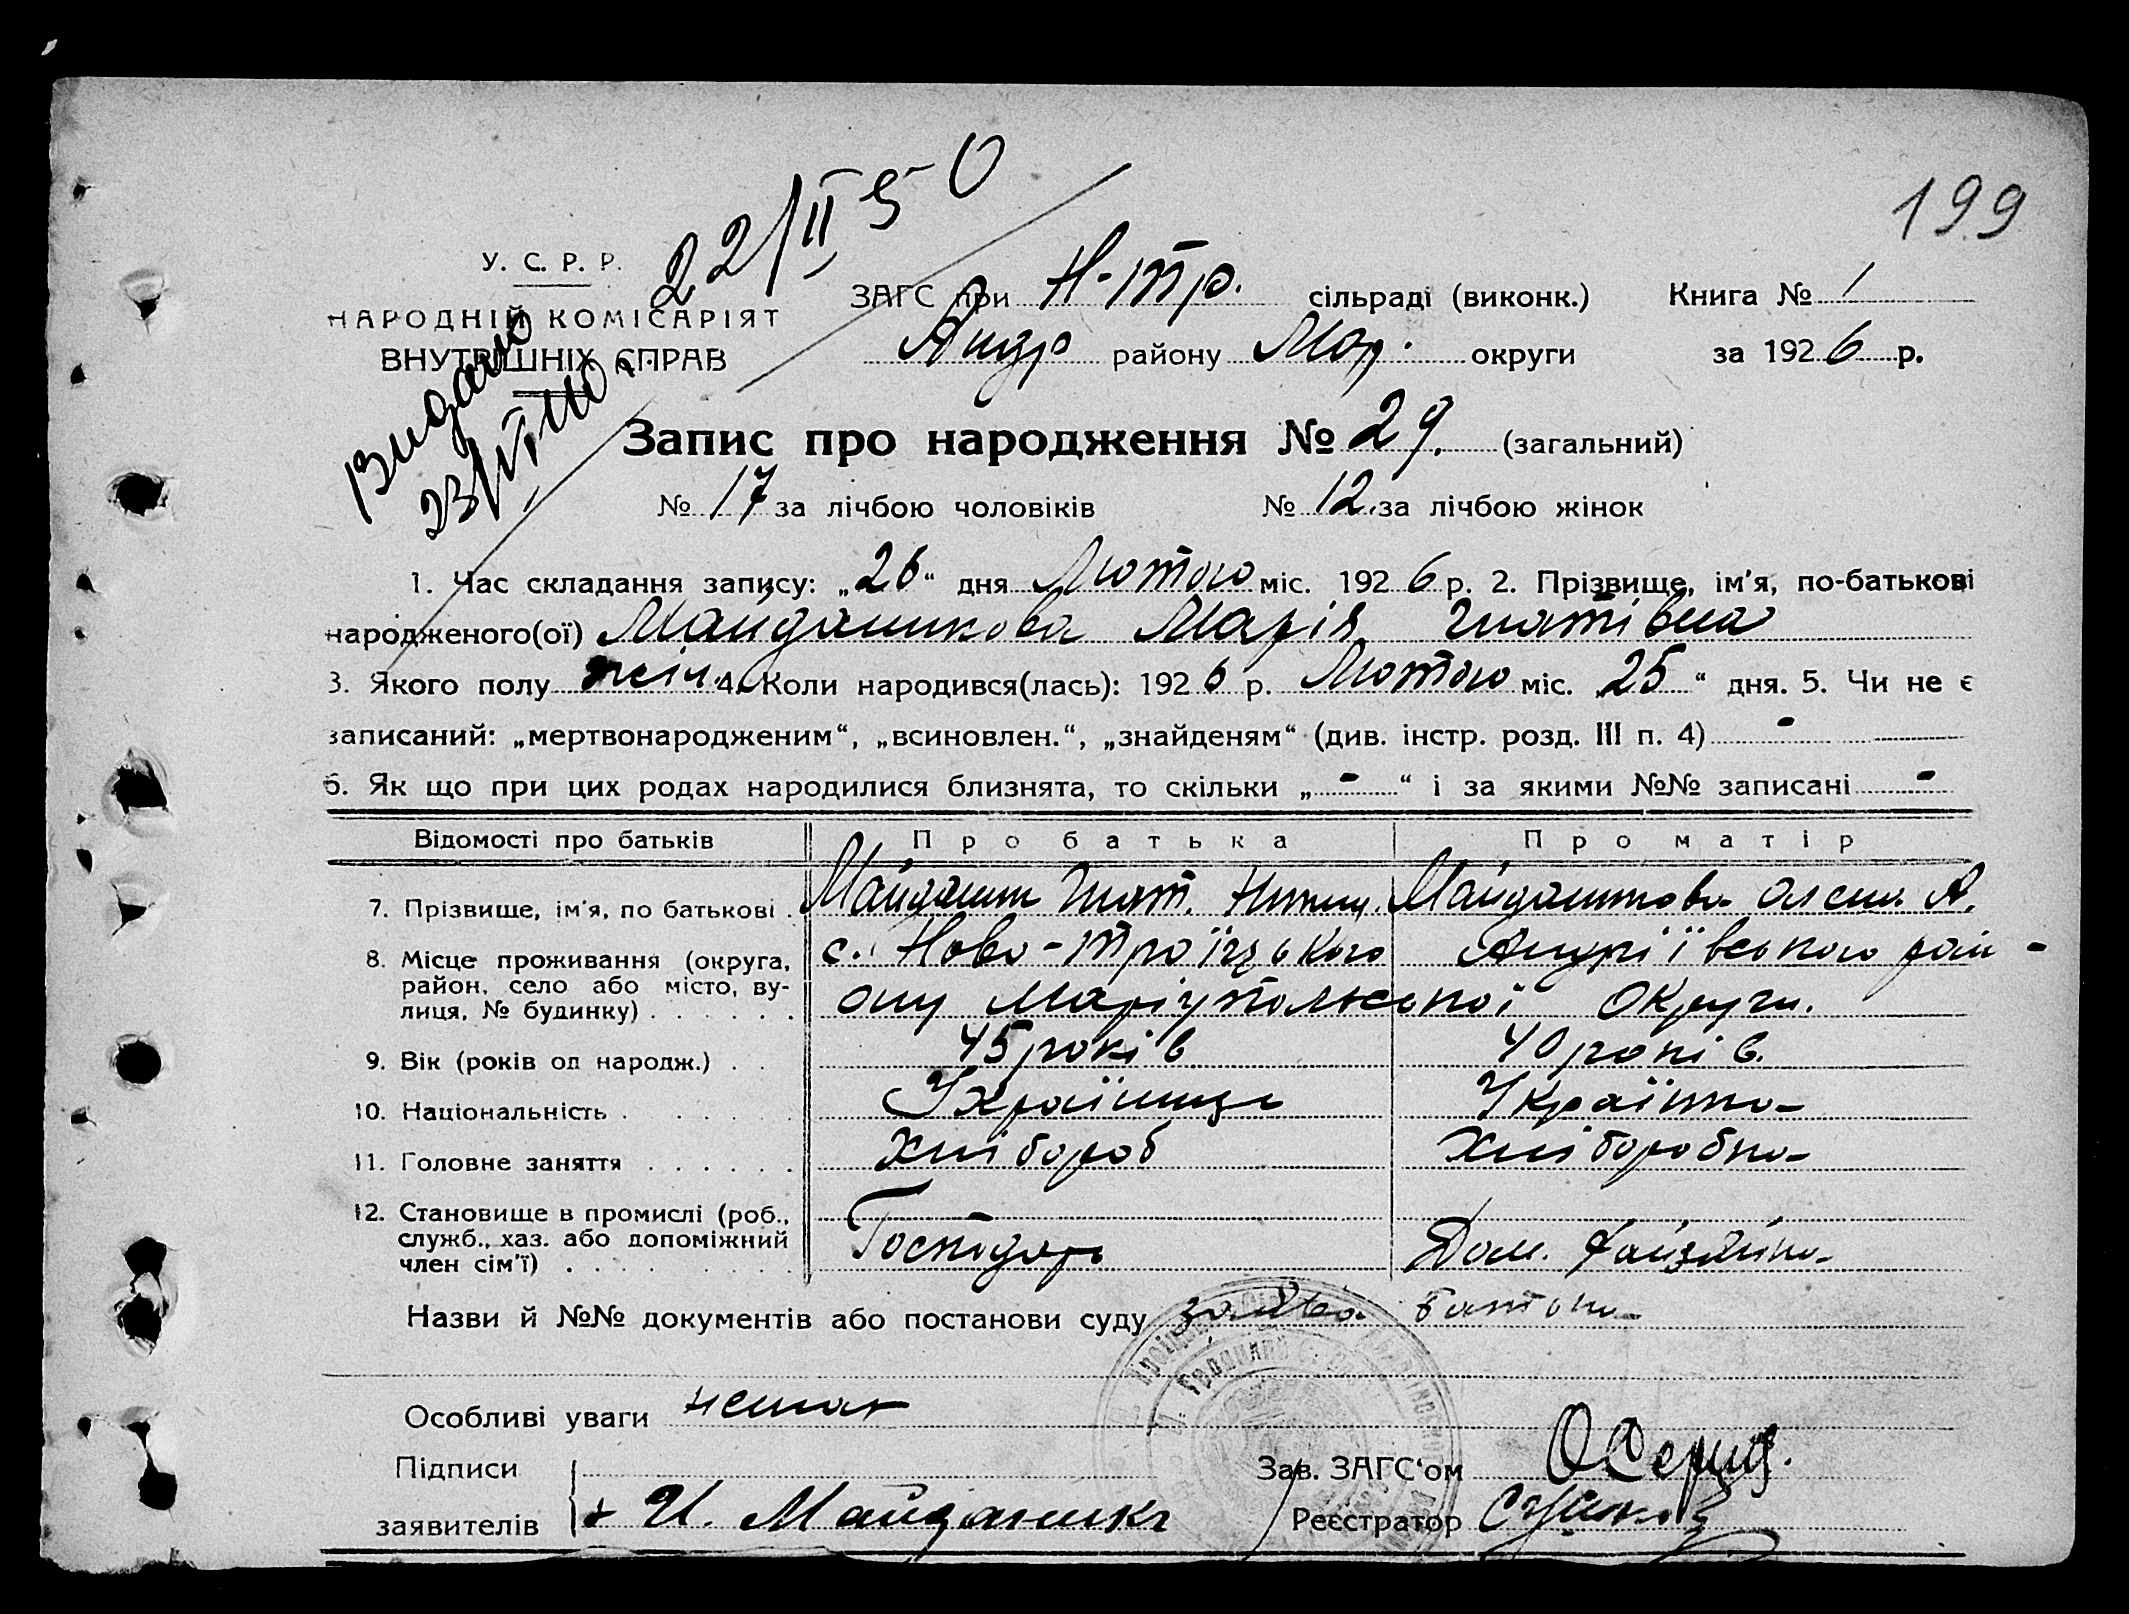 199
22/II 50
У. С. Р. Р.
НАРОДНІЙ КОМІСАРІЯТ
ВНУТРІШНІХ СПРАВ
Видано
ЗАГС при Н-Тр. сільраді (виконк.) Книга № 1
Андр району Мар. округи за 1926 р.
Запис про народження № 29. (загальний)
№ 17 за лічбою чоловіків № 12 за лічбою жінок
1. Час складання запису: „26“ дня Лютого міс. 1926 р. 2. Прізвище, ім'я, по-батькові
народженого(ої) Майданикова Марія Гнатівна
3. Якого полу жіч. 4. Коли народився(лась): 1926 р. Лютого міс. „25“ дня. 5. Чи не є
записаний: „мертвонародженим“, „всиновлен.“, „знайденям“ (див. інстр. розд. III п. 4) -
6. Як що при цих родах народилися близнята, то скільки „-“ і за якими №№ записані -
Відомості про батьків Про батька Про матір
7. Прізвище, ім'я, по батькові . Майданик Гнат. Майданикова Олена А.
8. Місце проживання (округа, с. Ново-Троїцького Андріївського рай-
район, село або місто, ву-
лиця, № будинку) . . . . . . ону Маріупольської Округи.
9. Вік (років од народж.) . . 45 років 40 років.
10. Національність . . . . . Українець Українка
11. Головне заняття . . . . . . Хлібороб Хліборобка
12. Становище в промислі (роб.,
служб., хаз. або допоміжний Господарь Дом. Хазяйка
член сім'ї) . . . . . . . .
Назви й №№ документів або постанови суду заява батька
Особливі уваги немає
Підписи Зав. ЗАГС'ом
заявителів + И. Майданика Реєстратор